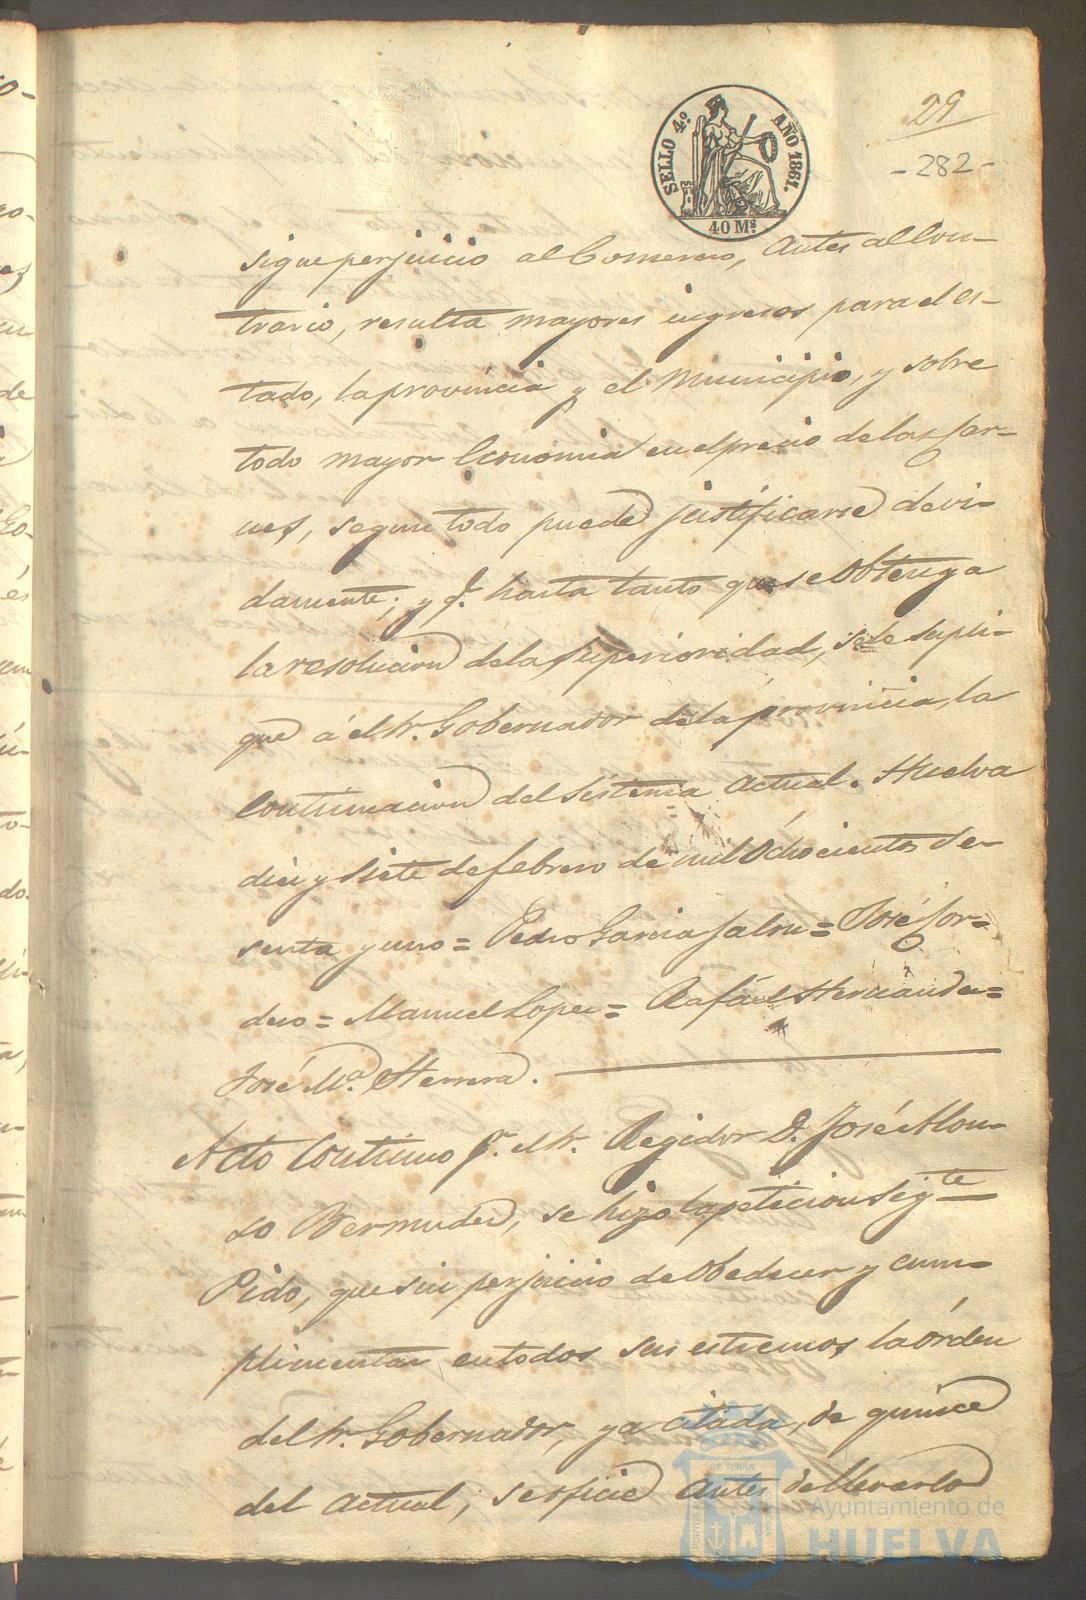 29
-282-
SELLO 4.º AÑO 1861.
40 M.s
sigue perjuicio al Comercio, antes al Con-
trario, resulta mayores ingresos para el es-
tado, la provincia y el Municipio, y sobre
todo mayor Economia en el precio de las Car-
nes, segun todo puede justificarse devi-
damente; y q.e hasta tanto que se obtenga
la resolucion de la Superioridad, se le supli-
que á el Sr. Gobernador de la provincia, la
continuacion del Sistema actual. Huelva
diez y siete de febrero de mil ochocientos se-
senta y uno = Pedro Garcia Jalon = José Cor-
dero = Manuel Lopez = Rafáel Hernandez =
José M.a Herrera.
Acto Continuo p.r el Sr. Regidor D. José Alon-
so Bermudez, se hizo la peticion sig.te
Pido, que sin perjuicio de obedecer y cum-
plimentar en todos sus estremos la órden
del Sr. Gobernador, ya citada, de quince
del actual, se oficie antes de llevarlo
ET TERRÆ
Ayuntamiento de
HUELVA